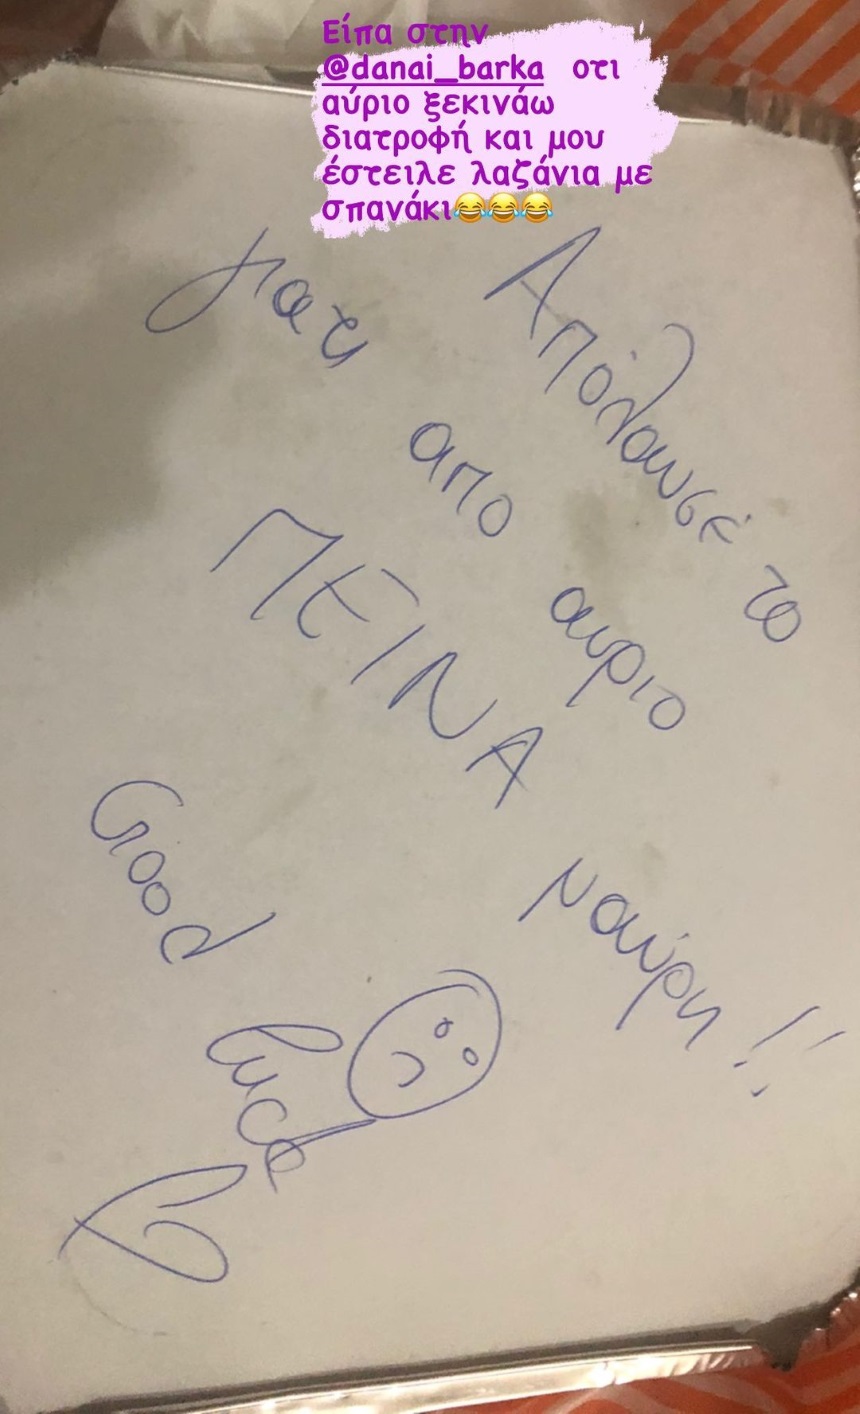 Είπα στην
@danai_barka οτι
αύριο ξεκινάω
διατροφή και μου
έστειλε λαζάνια με
σπανάκι😂😂😂
Απόλαυσέ το
γιατι απο αυριο
ΠΕΙΝΑ μαύρη!!
Good luck